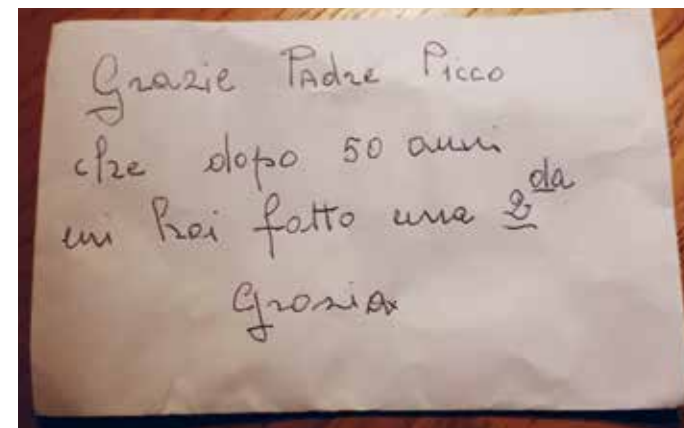 Grazie Padre Picco
che dopo 50 anni
mi hai fatto una 2da
Grazia